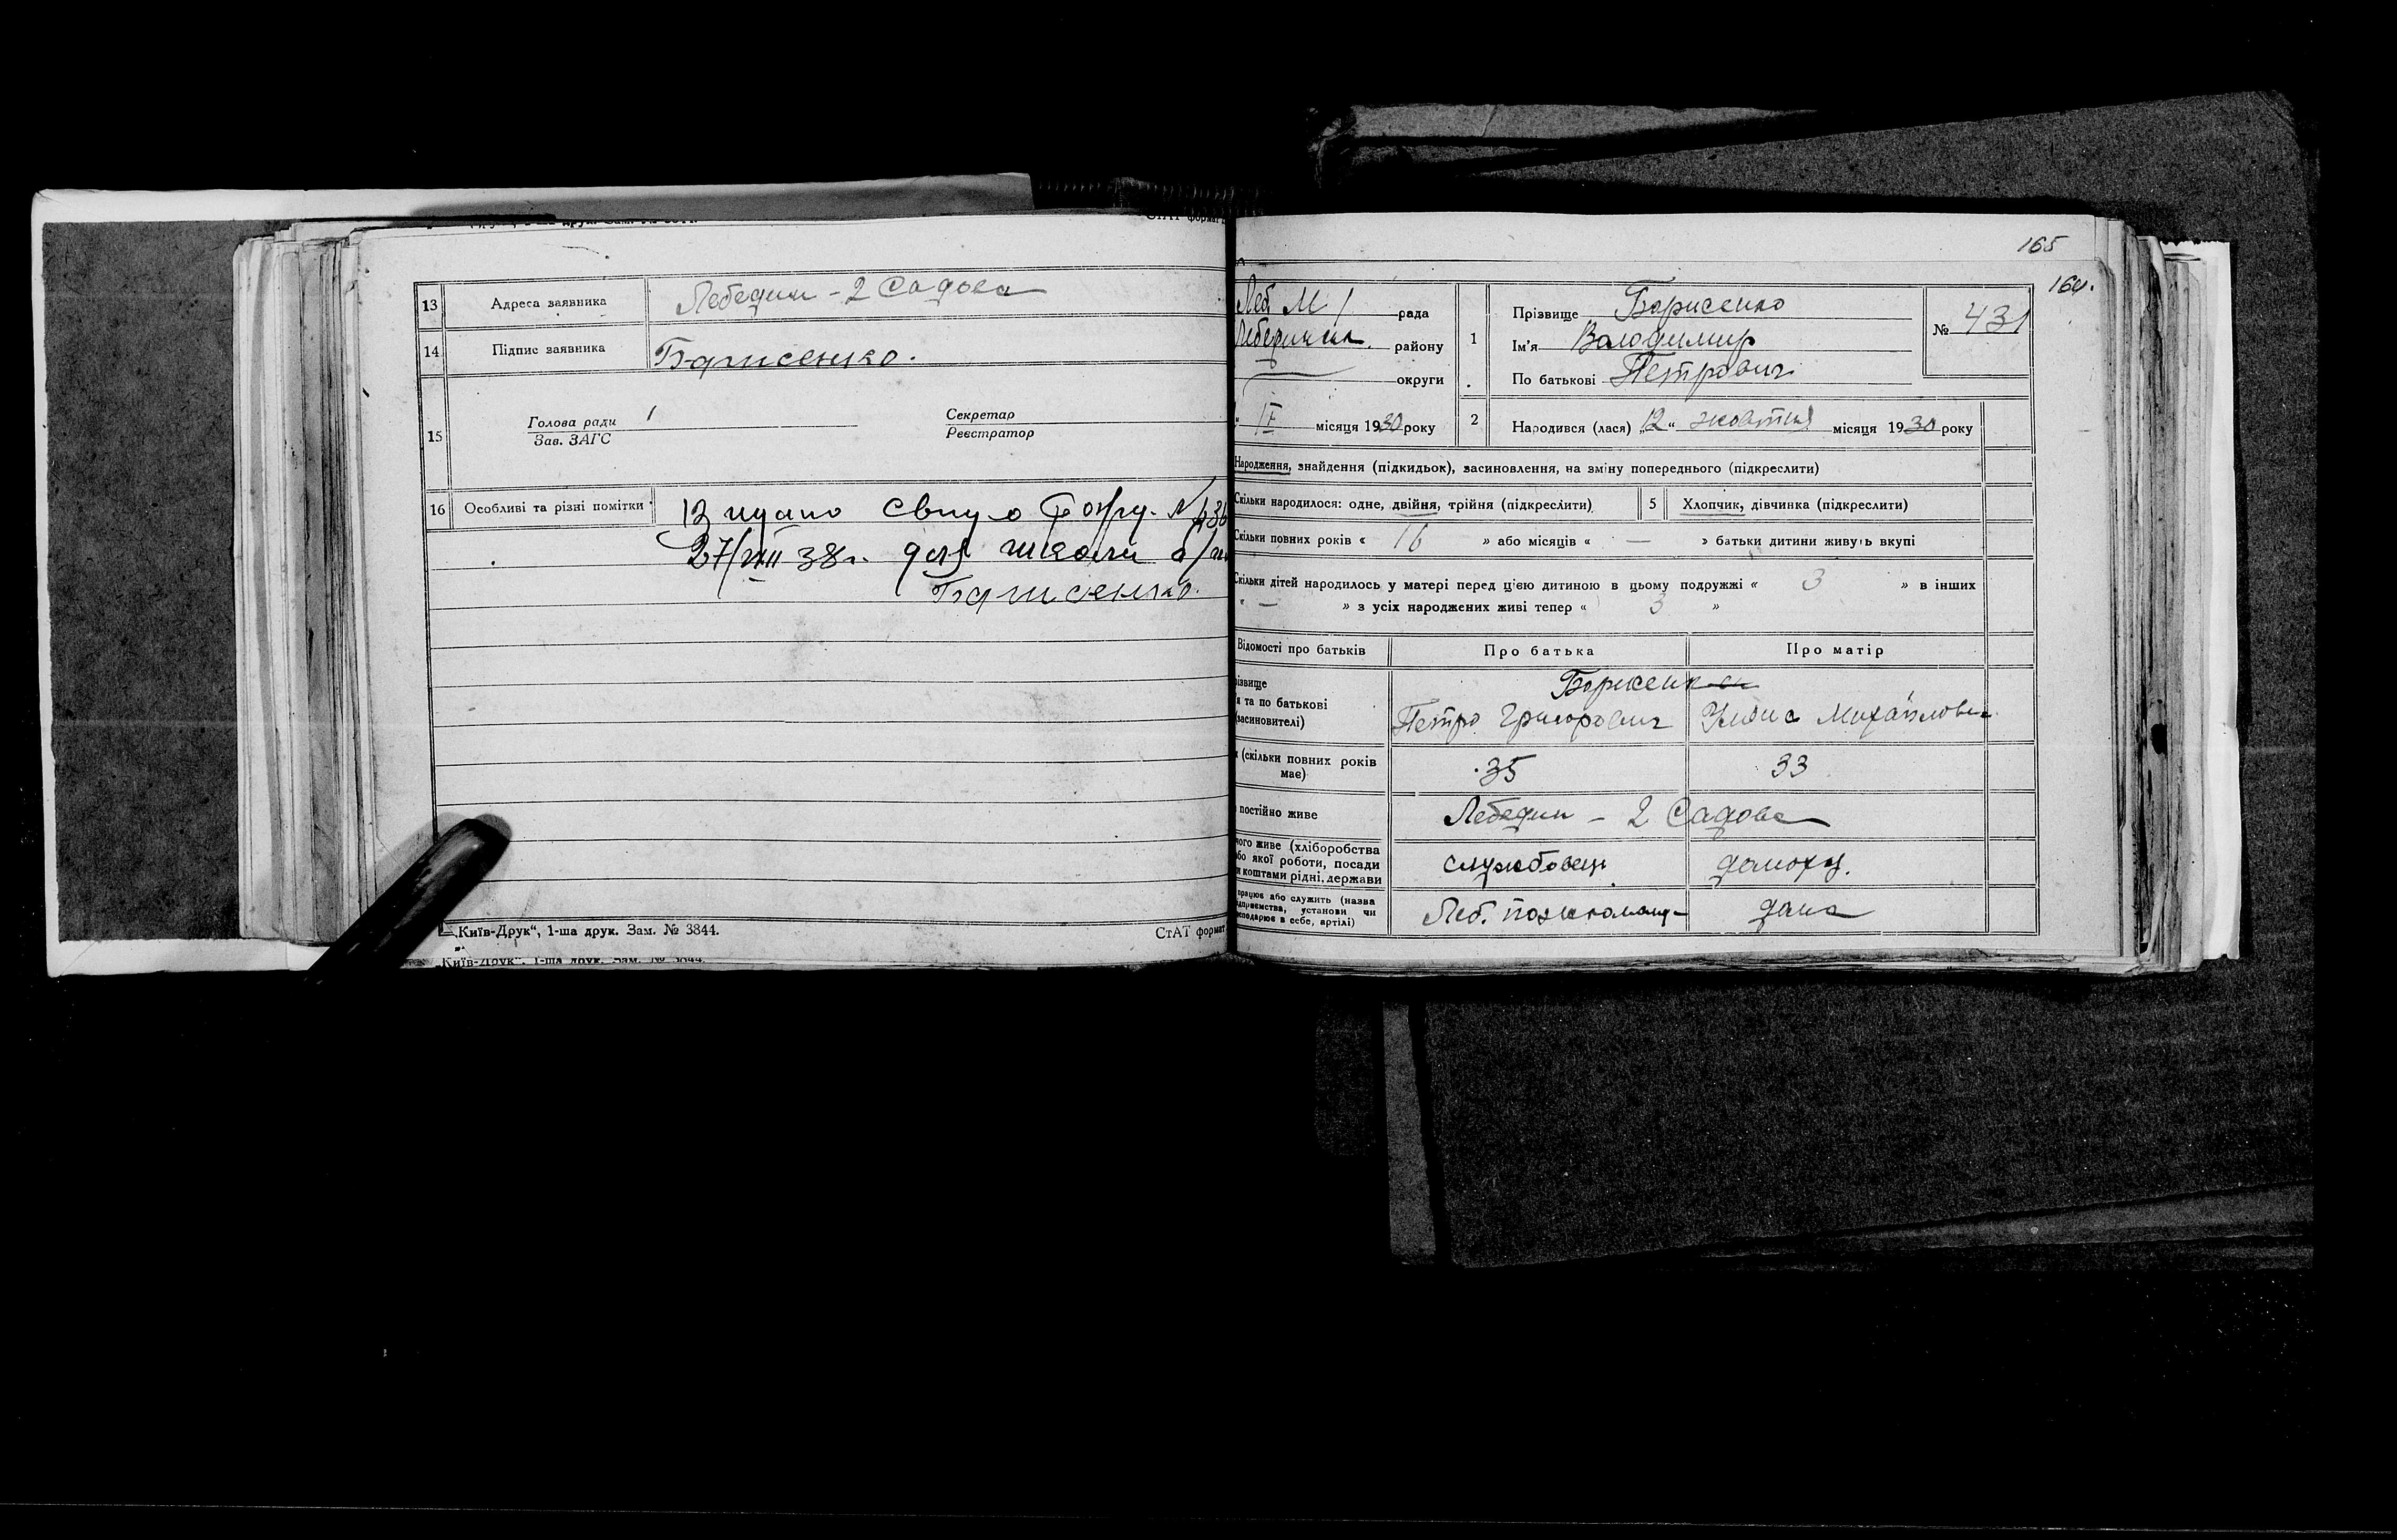 13 Адреса заявника Лебедин - 2 Садова
14 Підпис заявника Борисенко.
15 Голова ради Секретар
Зав. ЗАГС Реєстратор
16 Особливі та різні помітки Видано
27/VIII 38 г. для школи
Борисенко.
„Київ-Друк“, 1-ша друк. Зам. № 3844. СтАТ формат
„Київ-Друк“. 1-ша друк. Зам. № 3844.
165
164.
Леб М рада
району
округи
місяця 1930 року
1 Прізвище Борисенко
Ім'я Володимир
По батькові Петрович
№ 431
2 Народився (лася) „12“ жовтня місяця 1930 року
Народження, знайдення (підкидьок), засиновлення, на зміну попереднього (підкреслити)
Скільки народилося: одне, двійня, трійня (підкреслити) 5 Хлопчик, дівчинка (підкреслити)
Скільки повних років « 16 » або місяців « — » батьки дитини живуть вкупі
Скільки дітей народилось у матері перед цією дитиною в цьому подружжі « 3 » в інших
« — » з усіх народжених живі тепер « 3 »
Відомості про батьків Про батька Про матір
ізвище Борисенк
я та по батькові
(засиновителі) Петро Григорович Михайловна
(скільки повних років
має) 35 33
постійно живе Лебедин - 2 Садова
чого живе (хліборобства
бо якої роботи, посади
и коштами рідні, держави службовец домогд.
працює або служить (назва
ідприємства, установи чи
сподарює в себе, артілі) Леб. дома